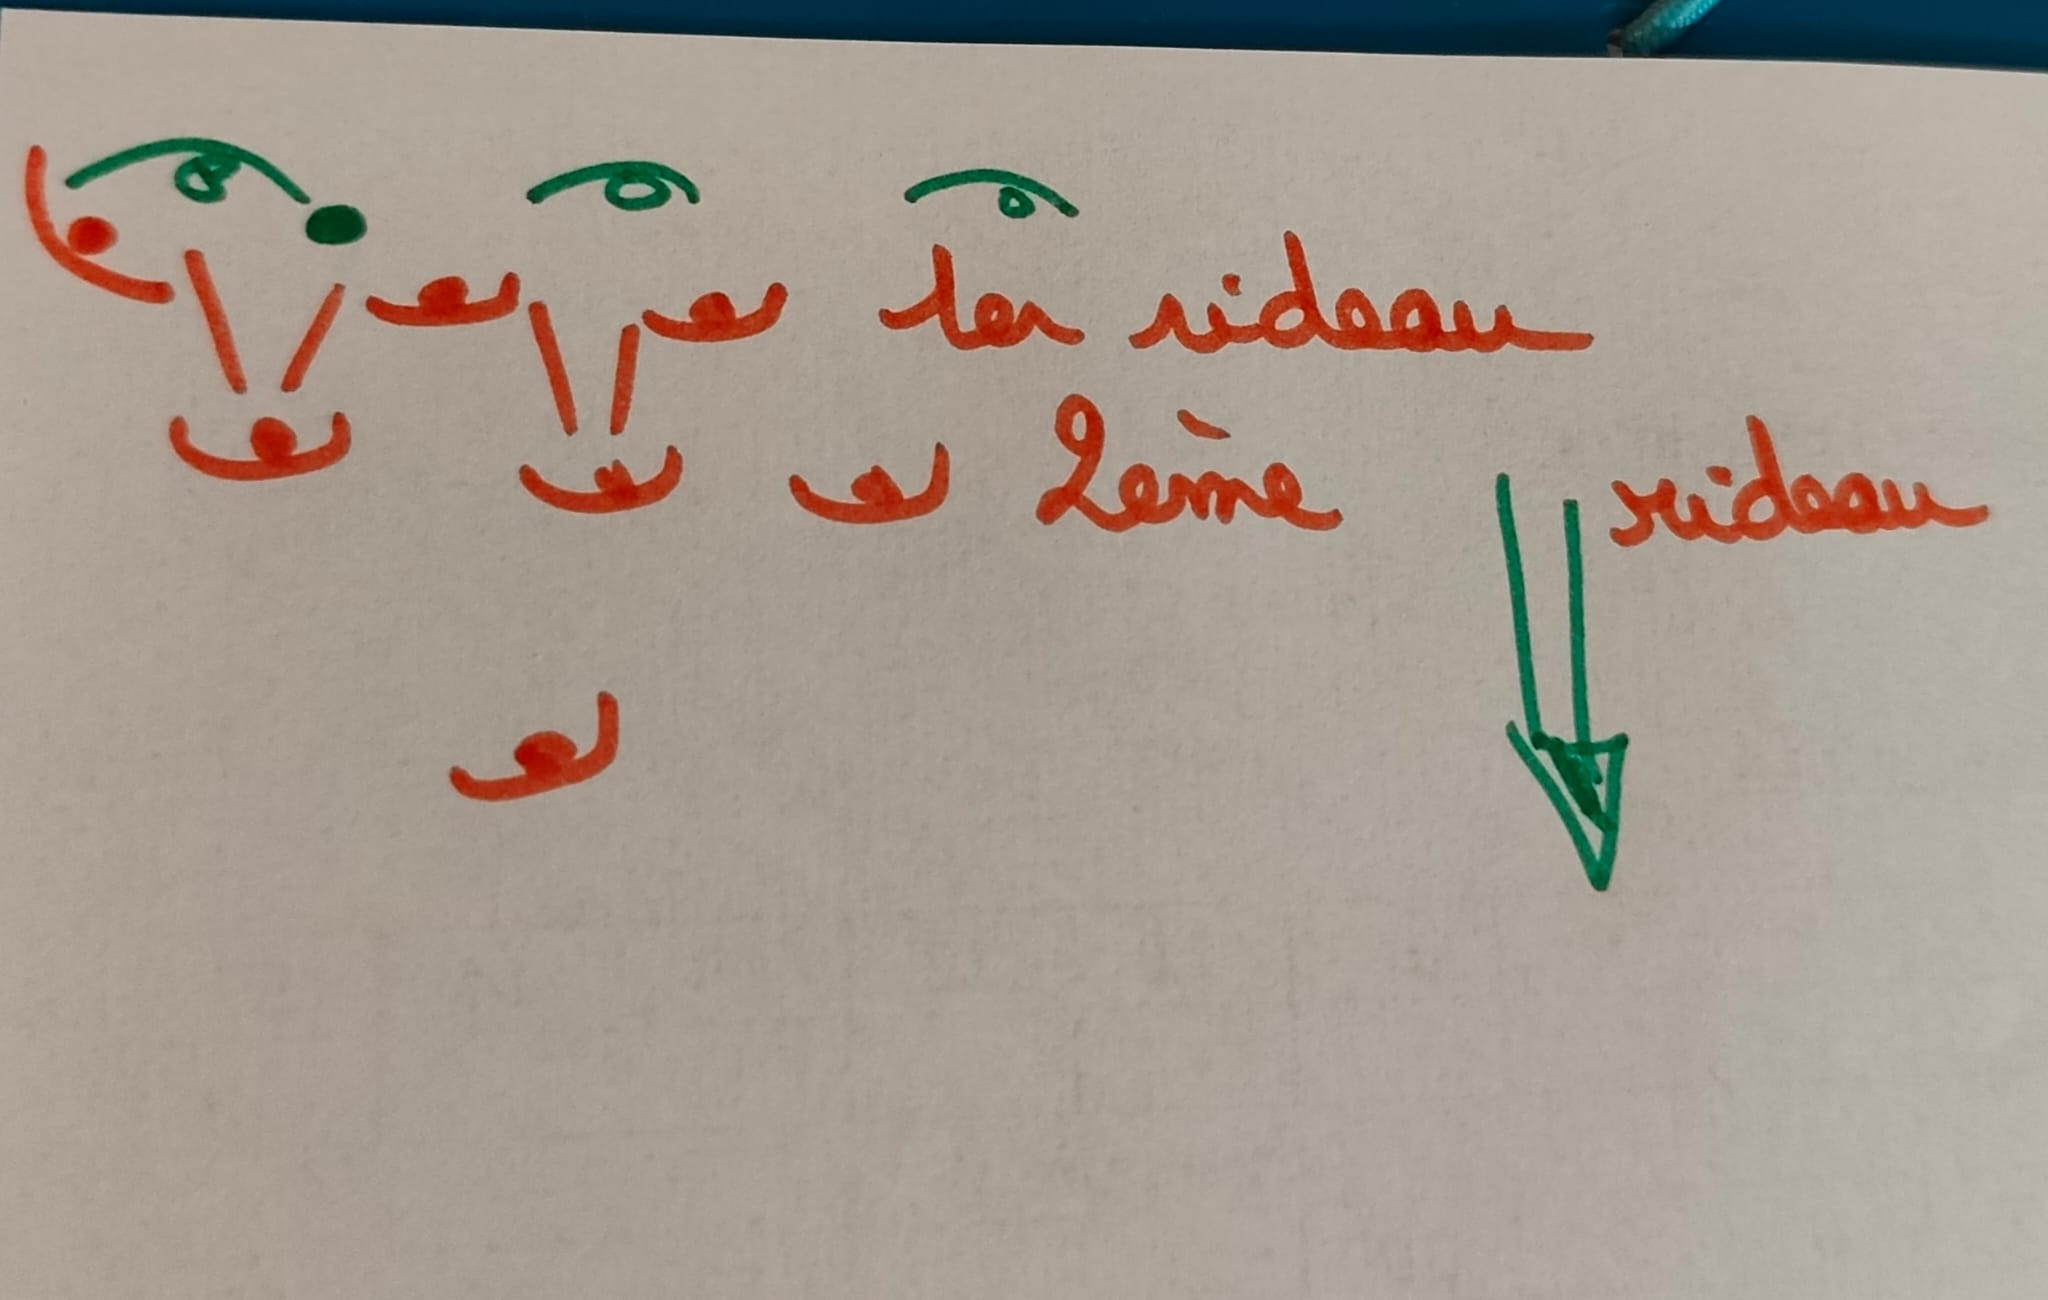 1er rideau
2ème rideau